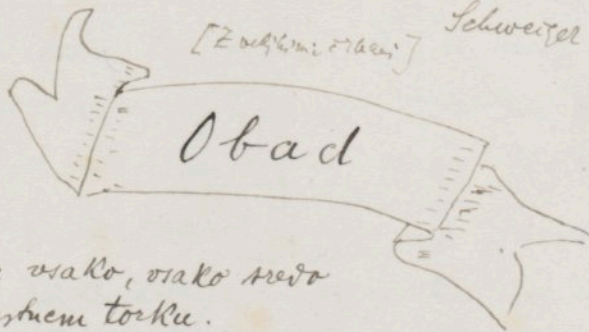 Schweiger
[Z velikimi črkami]
Obad
vsako, vsako sredo
torku.